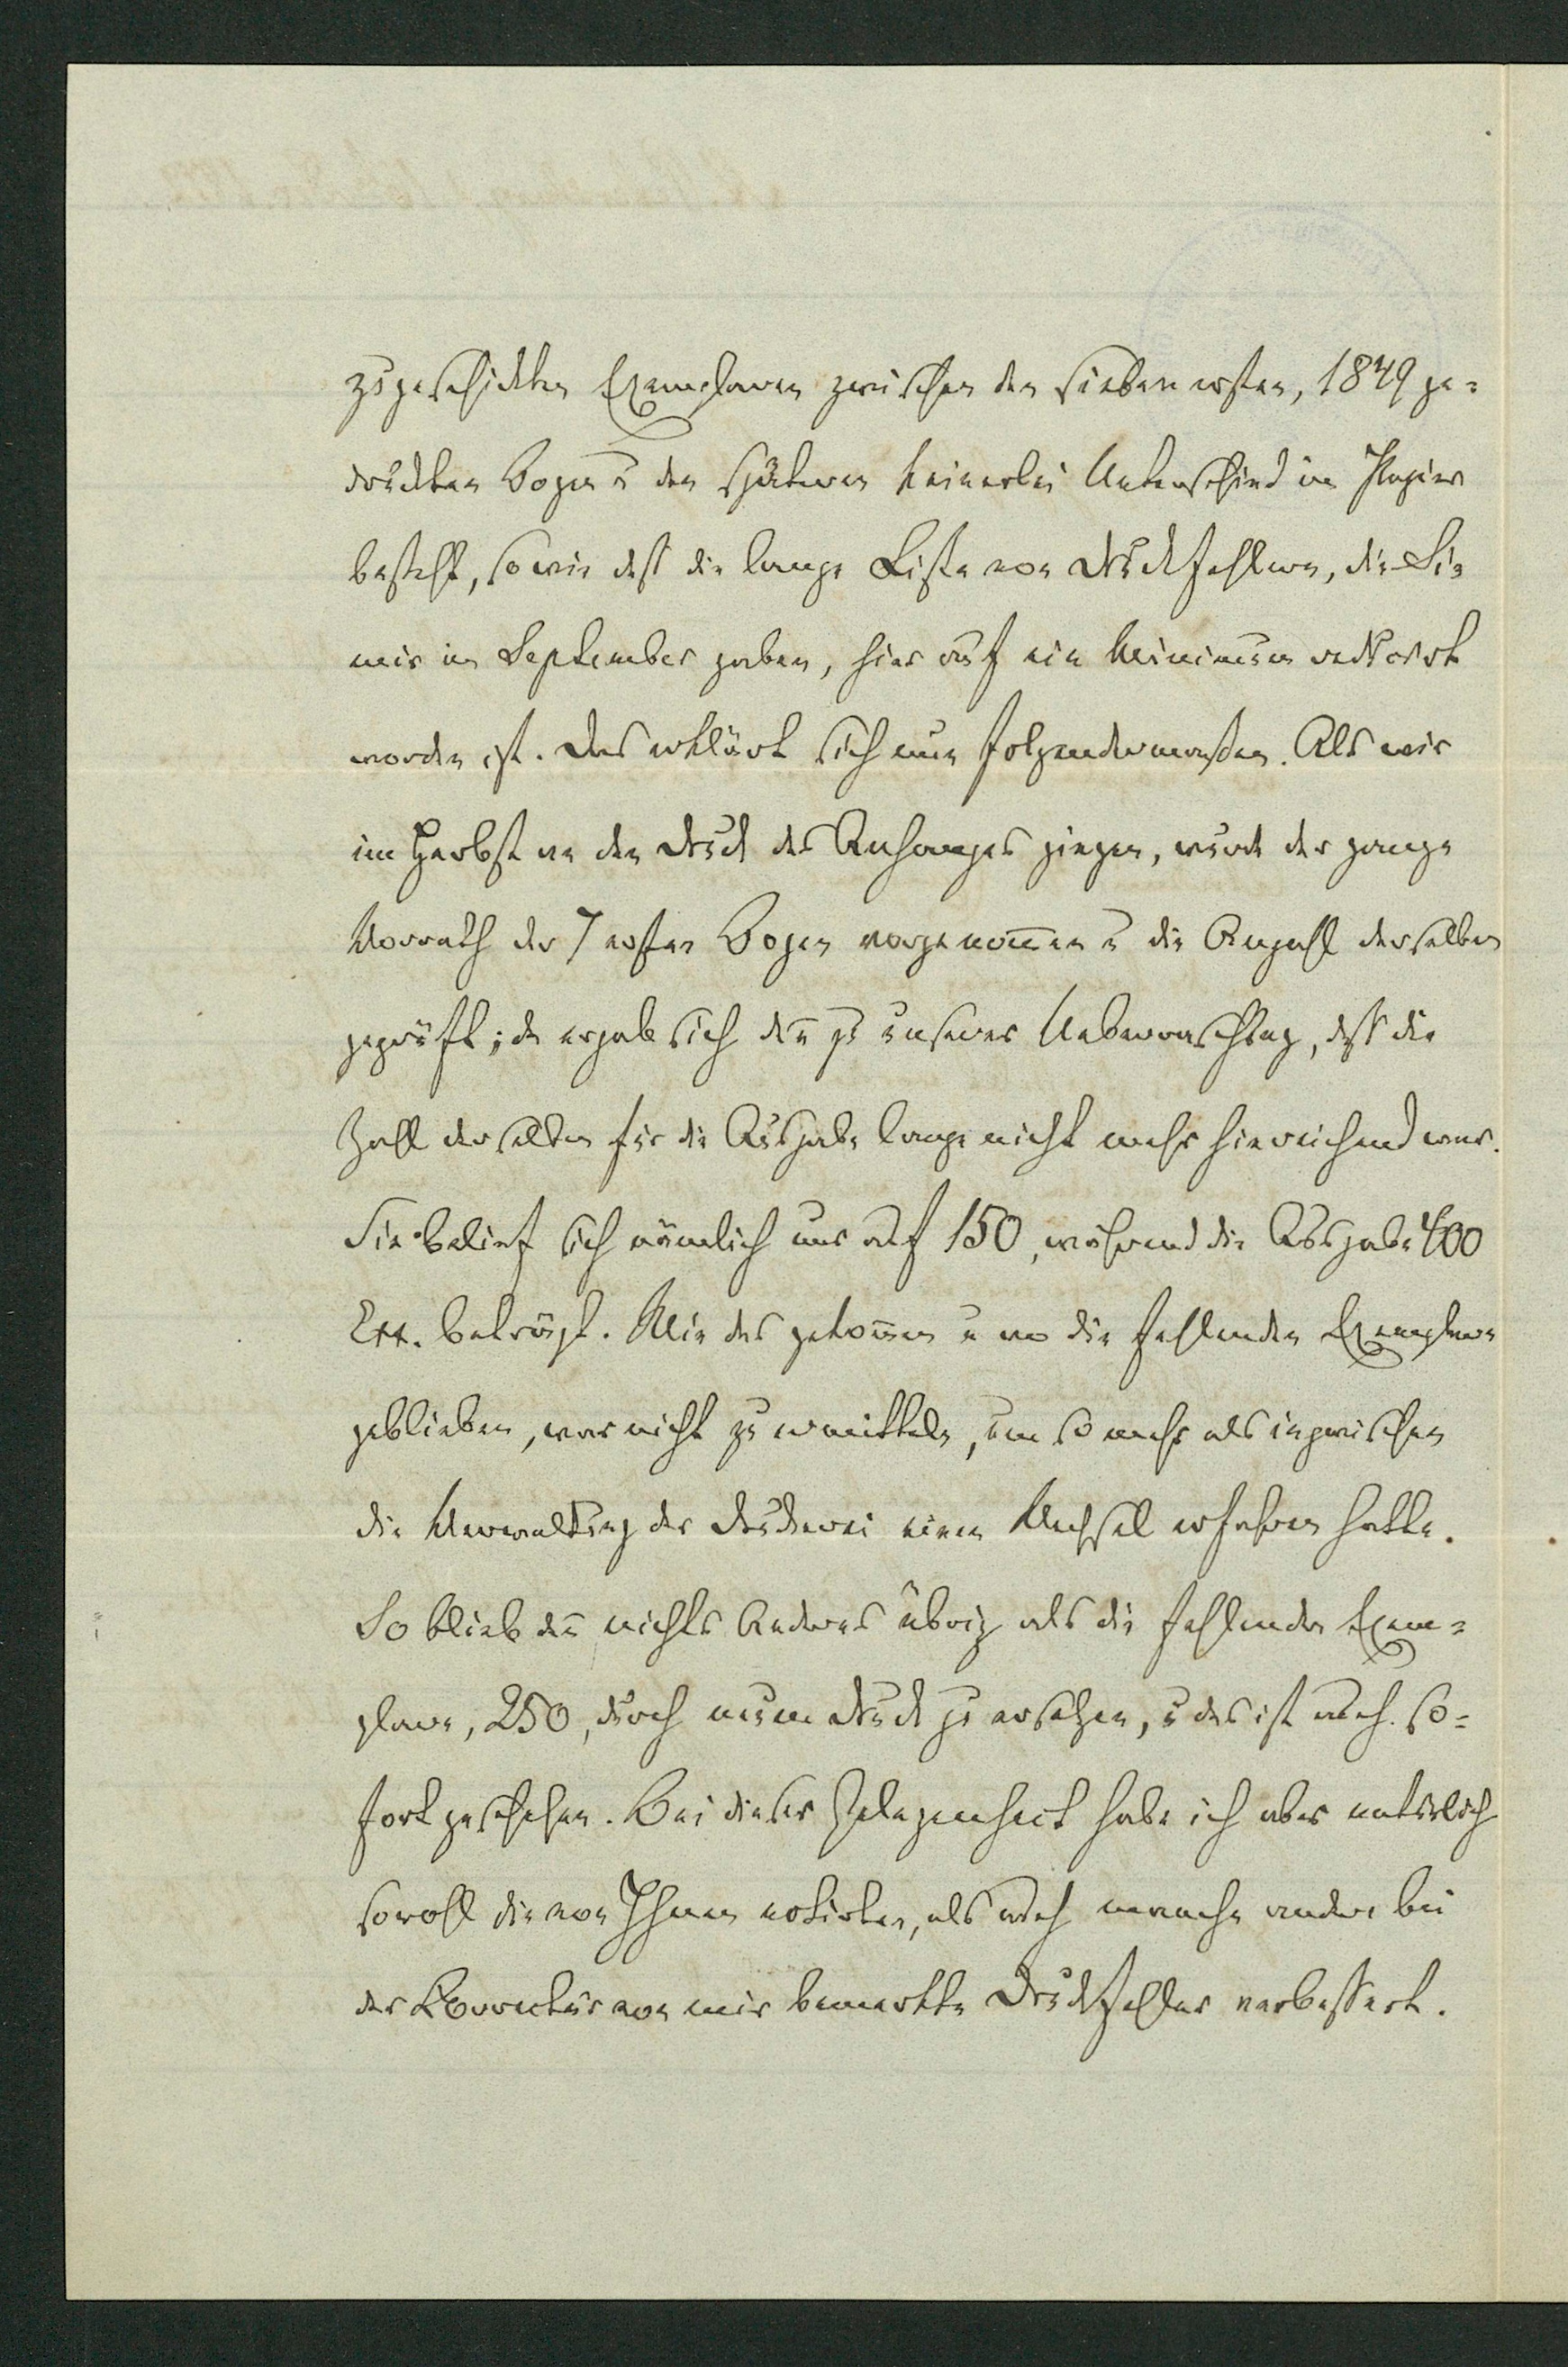 zugeschickten Exemplaren zwischen den sieben ersten, 1849 ge-
druckten Bogen u den späteren keinerlei Unterschied im Papier
besteht, sowie daß die lange Liste von Druckfehlern, die Sie
mir im September gaben, hier auf ein Minimum reducirt
worden ist. Das erklärt sich nun folgendermaßen. Als wir
im Herbst an den Druck des Anhanges gingen, wurde der ganze
Vorrath der 7 ersten Bogen vorgenom̄en u die Anzahl derselben
geprüft; da ergab sich den̄ zu unserer Ueberraschung, daß die
Zahl derselben für die Ausgabe lange nicht mehr hinreichend war.
Sie belief sich nämlich nur auf 150, während die Ausgabe 400
Exx. beträgt. Wie das gekom̄en u wo die fehlenden Exemplare
geblieben, war nicht zu ermitteln, um so mehr als inzwischen
die Verwaltung der Druckerei einen Wechsel erfahren hatte.
So blieb den̄ nichts Anderes übrig als die fehlenden Exem-
plare, 250, durch neuen Druck zu ersetzen, u das ist auch so-
fort geschehen. Bei dieser Gelegenheit habe ich aber natürlich
sowohl die von Ihnen notirten, als auch manche andere bei
der Korrektur von mir bemerkte Druckfehler verbessert.